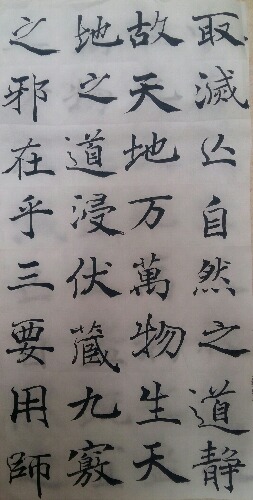 取滅亾自然之道静
故天地万萬物生天
地之道浸伏藏九竅
之邪在乎三要用師